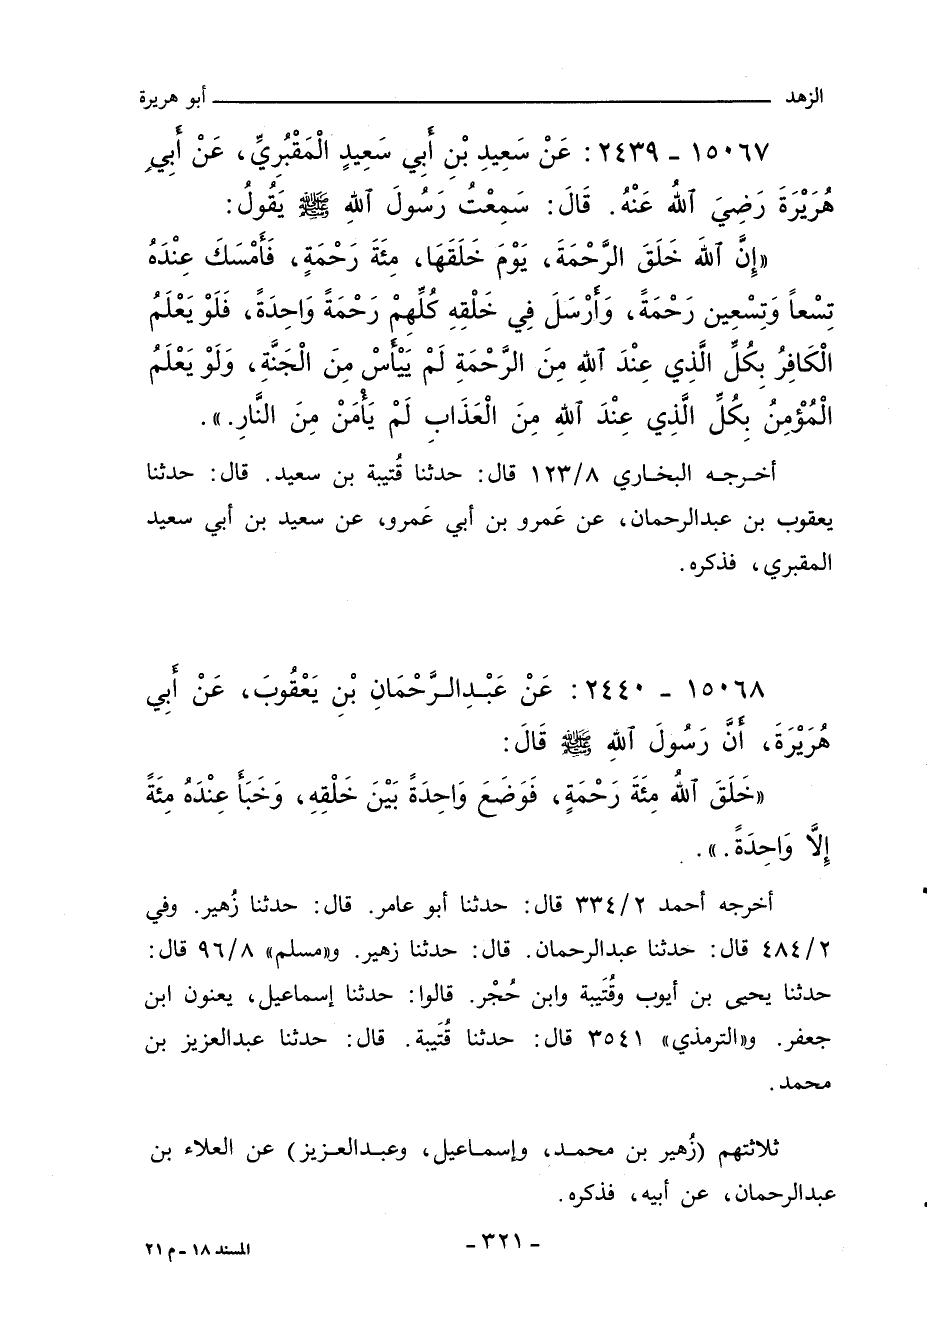 الزهد ــــــــــــــــــــــــــــــــــــــــ أبو هريرة
١٥٠٦٧ - ٢٤٣٩: عَنْ سَعِيدِ بْنِ أَبِي سَعِيدٍ الْمَقْبُرِيِّ، عَنْ أَبِي
هُرَيْرَةَ رَضِيَ اللهُ عَنْهُ. قَالَ: سَمِعْتُ رَسُولَ اللهِ ﷺ يَقُولُ:
«إِنَّ اللهَ خَلَقَ الرَّحْمَةَ، يَوْمَ خَلَقَهَا، مِئَةَ رَحْمَةٍ، فَأَمْسَكَ عِنْدَهُ
تِسْعاً وَتِسْعِينَ رَحْمَةً، وَأَرْسَلَ فِي خَلْقِهِ كُلِّهِمْ رَحْمَةً وَاحِدَةً، فَلَوْ يَعْلَمُ
الْكَافِرُ بِكُلِّ الَّذِي عِنْدَ اللهِ مِنَ الرَّحْمَةِ لَمْ يَيْأَسْ مِنَ الْجَنَّةِ، وَلَوْ يَعْلَمُ
الْمُؤْمِنُ بِكُلِّ الَّذِي عِنْدَ اللهِ مِنَ الْعَذَابِ لَمْ يَأْمَنْ مِنَ النَّارِ.».
أخرجه البخاري ١٢٣/٨ قال: حدثنا قُتيبة بن سعيد. قال: حدثنا
يعقوب بن عبدالرحمان، عن عَمرو بن أبي عَمرو، عن سعيد بن أبي سعيد
المقبري، فذكره.
١٥٠٦٨ - ٢٤٤٠: عَنْ عَبْدِالرَّحْمَانِ بْنِ يَعْقُوبَ، عَنْ أَبِي
هُرَيْرَةَ، أَنَّ رَسُولَ اللهِ ﷺ قَالَ:
«خَلَقَ اللهُ مِئَةَ رَحْمَةٍ، فَوَضَعَ وَاحِدَةً بَيْنَ خَلْقِهِ، وَخَبَأَ عِنْدَهُ مِئَةً
إِلَّا وَاحِدَةً.».
أخرجه أحمد ٣٣٤/٢ قال: حدثنا أبو عامر. قال: حدثنا زُهير. وفي
٤٨٤/٢ قال: حدثنا عبدالرحمان. قال: حدثنا زهير. و«مسلم» ٩٦/٨ قال:
حدثنا يحيى بن أيوب وقُتَيبة وابن حُجْر. قالوا: حدثنا إسماعيل، يعنون ابن
جعفر. و«الترمذي» ٣٥٤١ قال: حدثنا قُتَيبة. قال: حدثنا عبدالعزيز بن
محمد.
ثلاثتهم (زُهير بن محمد، وإسماعيل، وعبدالعزيز) عن العلاء بن
عبدالرحمان، عن أبيه، فذكره.
- ٣٢١ -
المسند ١٨ - م ٢١